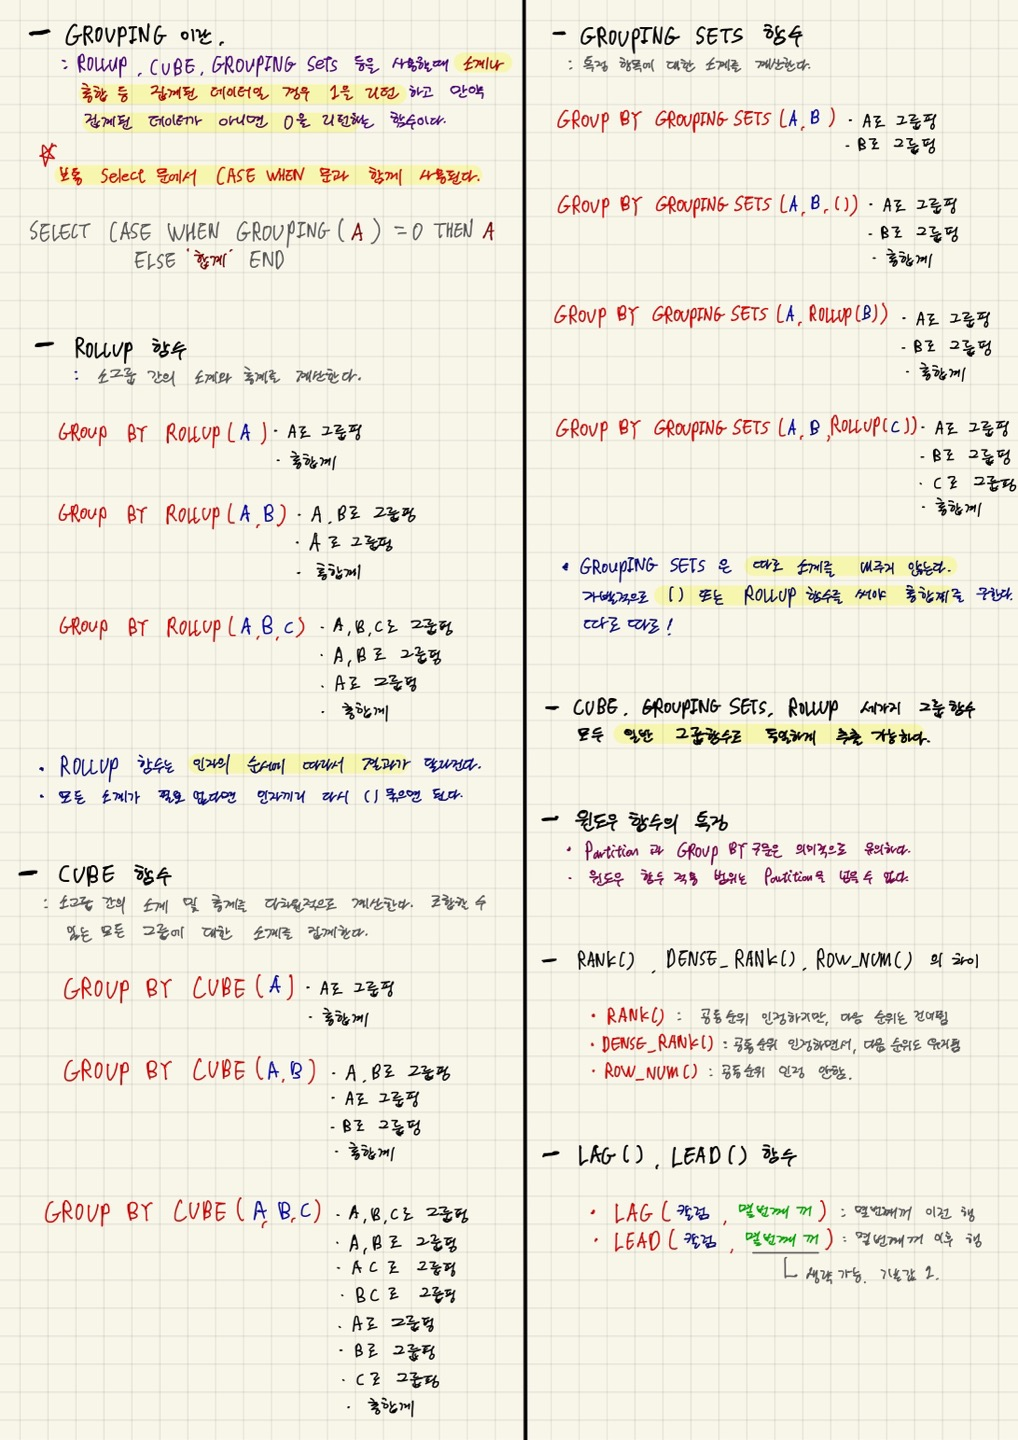 - GROUPING 이란.
: ROLLUP, CUBE, GROUPING Sets 등을 사용할때 소계나
총합 등 집계된 데이터일 경우 1을 리턴 하고 만약
집계된 데이터가 아니면 0을 리턴하는 함수이다.
☆
보통 Select 문에서 CASE WHEN 문과 함께 사용된다.
SELECT CASE WHEN GROUPING(A) = 0 THEN A
ELSE '합계' END
- ROLLUP 함수
: 소그룹 간의 소계와 총계를 계산한다.
GROUP BY ROLLUP(A) · A로 그룹핑
· 총합계
GROUP BY ROLLUP(A,B) · A,B로 그룹핑
· A로 그룹핑
· 총합계
GROUP BY ROLLUP(A,B,C) · A,B,C로 그룹핑
· A,B로 그룹핑
· A로 그룹핑
· 총합계
· ROLLUP 함수는 인자의 순서에 따라서 결과가 달라진다.
· 모든 소계가 필요 없다면 인자끼리 다시 () 묶으면 된다.
- CUBE 함수
: 소그룹 간의 소계 및 총계를 다차원적으로 계산한다. 조합할 수
있는 모든 그룹에 대한 소계를 집계한다.
GROUP BY CUBE(A) · A로 그룹핑
· 총합계
GROUP BY CUBE(A,B) · A,B로 그룹핑
· A로 그룹핑
· B로 그룹핑
· 총합계
GROUP BY CUBE(A,B,C) · A,B,C로 그룹핑
· A,B로 그룹핑
· AC로 그룹핑
· BC로 그룹핑
· A로 그룹핑
· B로 그룹핑
· C로 그룹핑
· 총합계
- GROUPING SETS 함수
: 특정 항목에 대한 소계를 계산한다.
GROUP BY GROUPING SETS(A,B) · A로 그룹핑
· B로 그룹핑
GROUP BY GROUPING SETS(A,B,()) · A로 그룹핑
· B로 그룹핑
· 총합계
GROUP BY GROUPING SETS(A, ROLLUP(B)) · A로 그룹핑
· B로 그룹핑
· 총합계
GROUP BY GROUPING SETS(A,B,ROLLUP(C)) · A로 그룹핑
· B로 그룹핑
· C로 그룹핑
· 총합계
· GROUPING SETS 은 따로 소계를 내주지 않는다.
개별적으로 () 또는 ROLLUP 함수를 써야 총합계를 구한다.
따로 따로!
- CUBE, GROUPING SETS, ROLLUP 세가지 그룹함수
모두 일반 그룹함수로 동일하게 추출 가능하다.
- 윈도우 함수의 특징
· Partition 과 GROUP BY 구문은 의미적으로 유의하다.
· 윈도우 함수 적용 범위는 Partition을 넘을 수 없다.
- RANK(), DENSE_RANK(), ROW_NUM() 의 차이
· RANK() : 공동순위 인정하지만, 다음 순위는 건너뜀
· DENSE_RANK() : 공동순위 인정하면서, 다음 순위도 유지됨
· ROW_NUM() : 공동순위 인정 안함.
- LAG(), LEAD() 함수
· LAG(컬럼, 몇번째 꺼) : 몇번째꺼 이전 행
· LEAD(컬럼, 몇번째 꺼) : 몇번째꺼 이후 행
생략 가능. 기본값 1.